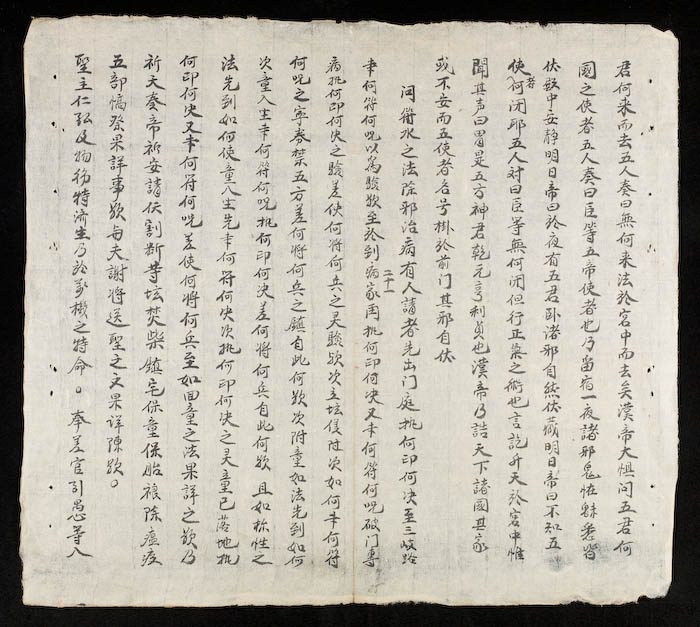 君何來而去五人奏曰無何來法於宮中而去矣漢帝大惧问五君何
國之使者五人奏曰臣等五帝使者也乃留宿一夜諸邪鬼怪縣悉皆
伏歛中安静明日帝曰於夜有五君卧諸邪自然伏藏明日帝曰不知五
使者何闭邪五人対曰臣等無何闭但行正氣之術也言訖升天於宮中惟
聞其声曰胃是五方神君乾元亨利貞也漢帝乃詰天下諸國其家
或不安而五使者名号掛於前门其邪自伏
问符水之法除邪治病有人請者先出门庭挑何印何决至三岐路
書何符何呪以為驗欤至於到病家二十一周挑何印何决又書何符何呪破门專
病挑何印何决之驗差使何將何兵之灵驗欤次立坛侵附次如何書何符
何呪之寧券禁五方差何將何兵之鎮自此何欤次附童如法先到如何
次童入生書何符何呪挑何印何决差何將何兵自此何欤且如称性之
法先到如何使童入生先書何符何决次挑何印何决之灵童已落地挑
何印何决又書何符何呪差使何將何兵至如回童之法果詳之欤乃
祈天奏帝祈安請伏割断荨坛焚柴鎮宅保童保胎禳除瘟疫
五部犒祭果詳事欤与夫謝將送聖之文果详陳欤。
聖主仁弘及物務特济生乃於萬機之特命。奉差官引愚等入